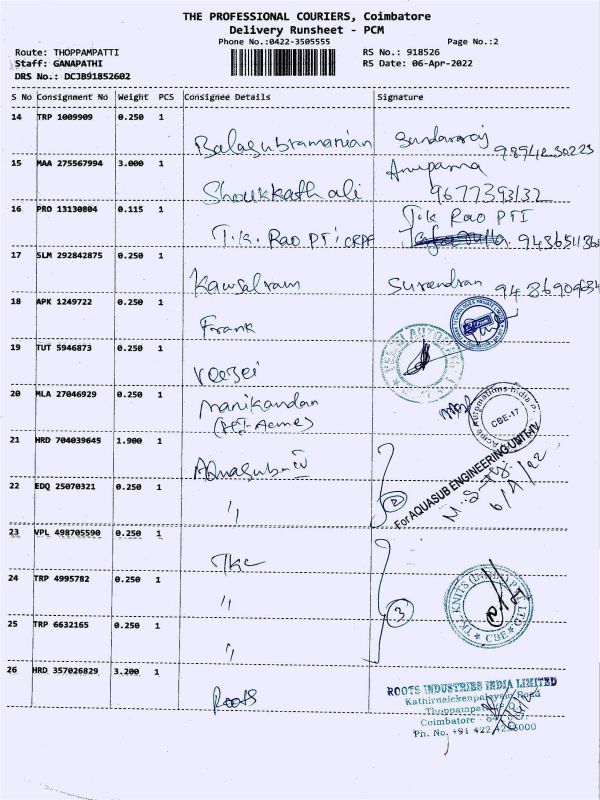 THE PROFESSIONAL COURIERS, Coimbatore
Delivery Runsheet - PCM
Phone No.:0422-3505555
Page No.:2
Route: THOPPAMPATTI
RS No.: 918526
Staff: GANAPATHI
RS Date: 06-Apr-2022
DRS No.: DCJB91852602
S No Consignment No Weight PCS Consignee Details Signature
14 TRP 1009909 0.250 1
Balasubramanian Sundararaj
15 MAA 275567994 3.000 1
Anupama
Shoukkath ali 9677393132
16 PRO 13130804 0.115 1
T.K. Rao PTI
T.K. Rao PTI CRPF
17 SLM 292842875 0.250 1
Kausalram Surendran
18 APK 1249722 0.250 1
Frank
19 TUT 5946873 0.250 1
20 MLA 27046929 0.250 1
Manikandan
Acme Automations India
CBE-17
21 HRD 704039645 1.900 1
Aquasub
For AQUASUB ENGINEERING UNIT-IV
6/4/22
22 EDQ 25070321 0.250 1
"
2
23 VPL 498705590 0.250 1
TKC
24 TRP 4995782 0.250 1
"
3
TKC KNITS (INDIA) PVT LTD
CBE
25 TRP 6632165 0.250 1
"
26 HRD 357026829 3.200 1
Roots
ROOTS INDUSTRIES INDIA LIMITED
Kathirnaickenpalayam Road
Coimbatore
Ph. No. +91 422